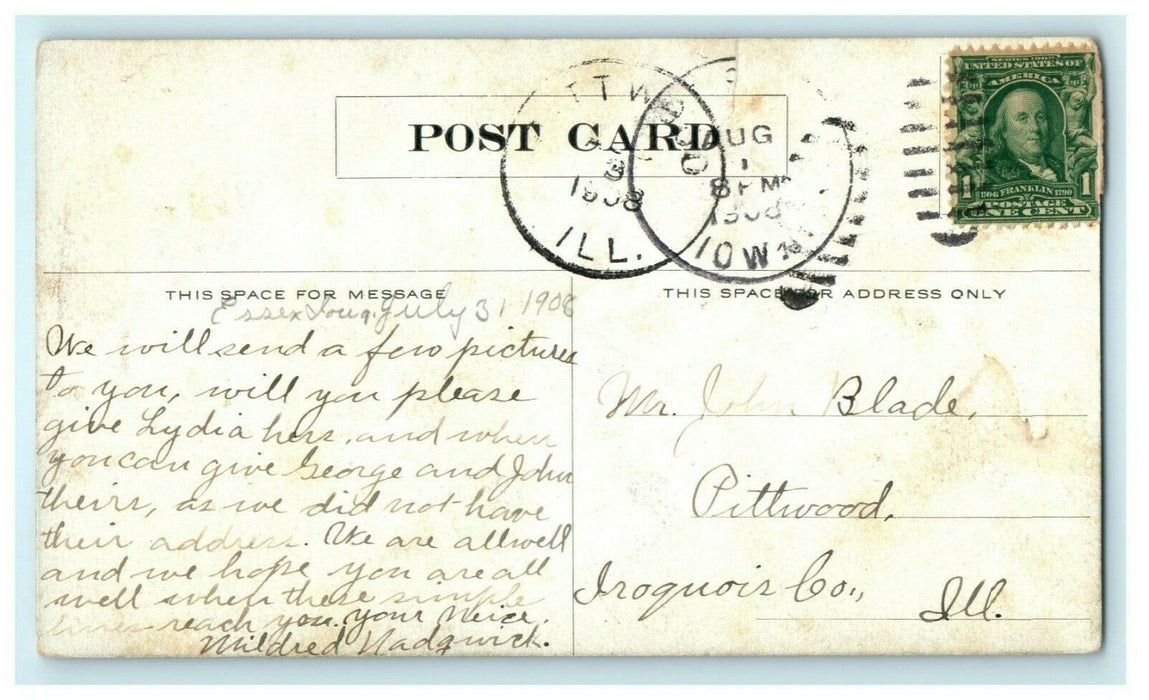 POST CARD
TTWOOD
3
1908
ILL.
AUG
1
8 PM
1908
IOWA
SERIES 1902
UNITED STATES OF
AMERICA
1
1706 FRANKLIN 1790
POSTAGE
ONE CENT
THIS SPACE FOR MESSAGE
THIS SPACE FOR ADDRESS ONLY
Essex Iowa. July 31 1908
We will send a few pictures
to you, will you please
give Lydia hers, and when
you can give George and John
theirs, as we did not have
their address. We are all well
and we hope you are all
well when these simple
lines reach you. your Neice.
Mildred
Mr. John Blade,
Pittwood,
Iroquois Co.,
Ill.